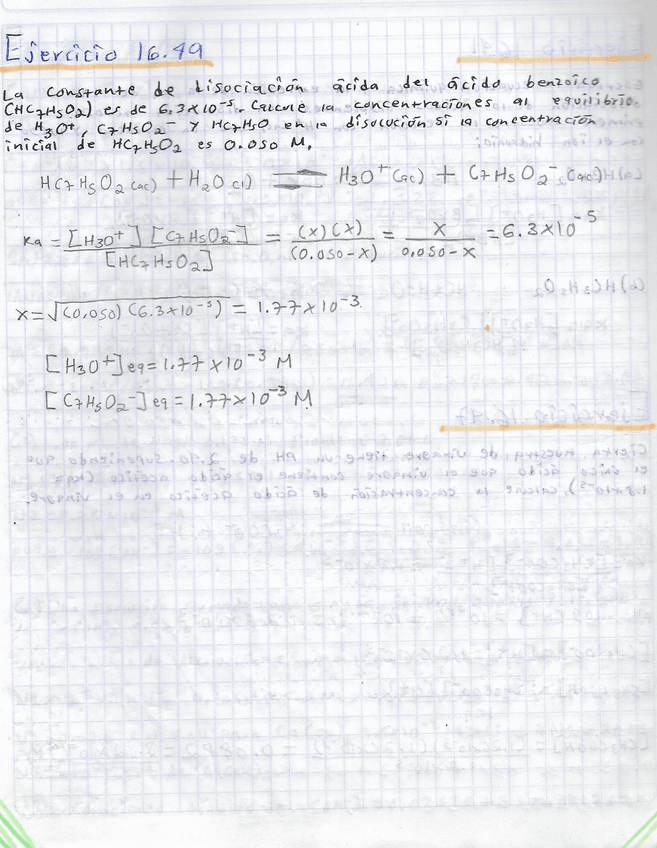 Ejercicio 16.49
La constante de disociación ácida del ácido benzoico
(HC7H5O2) es de 6.3x10⁻⁵. Calcule la concentraciones al equilibrio
de H3O⁺, C7H5O2⁻ Y HC7H5O en la disolución si la concentración
inicial de HC7H5O2 es 0.050 M.
HC7H5O2(ac) + H2O(l) ⇌ H3O⁺(ac) + C7H5O2⁻(ac)
Ka = [H3O⁺][C7H5O2⁻] / [HC7H5O2] = (x)(x) / (0.050-x) = x / 0.050-x = 6.3x10⁻⁵
x = √(0.050)(6.3x10⁻⁵) = 1.77x10⁻³.
[H3O⁺]eq = 1.77x10⁻³ M
[C7H5O2⁻]eq = 1.77x10⁻³ M